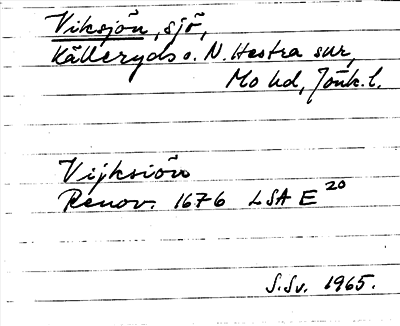 Viksjön, sjö,
Källeryds o. N. Hestra snr,
Mo hd, Jönk. l.
Vijksiön
Renov. 1676 LSA E 20
S. Sv. 1965.